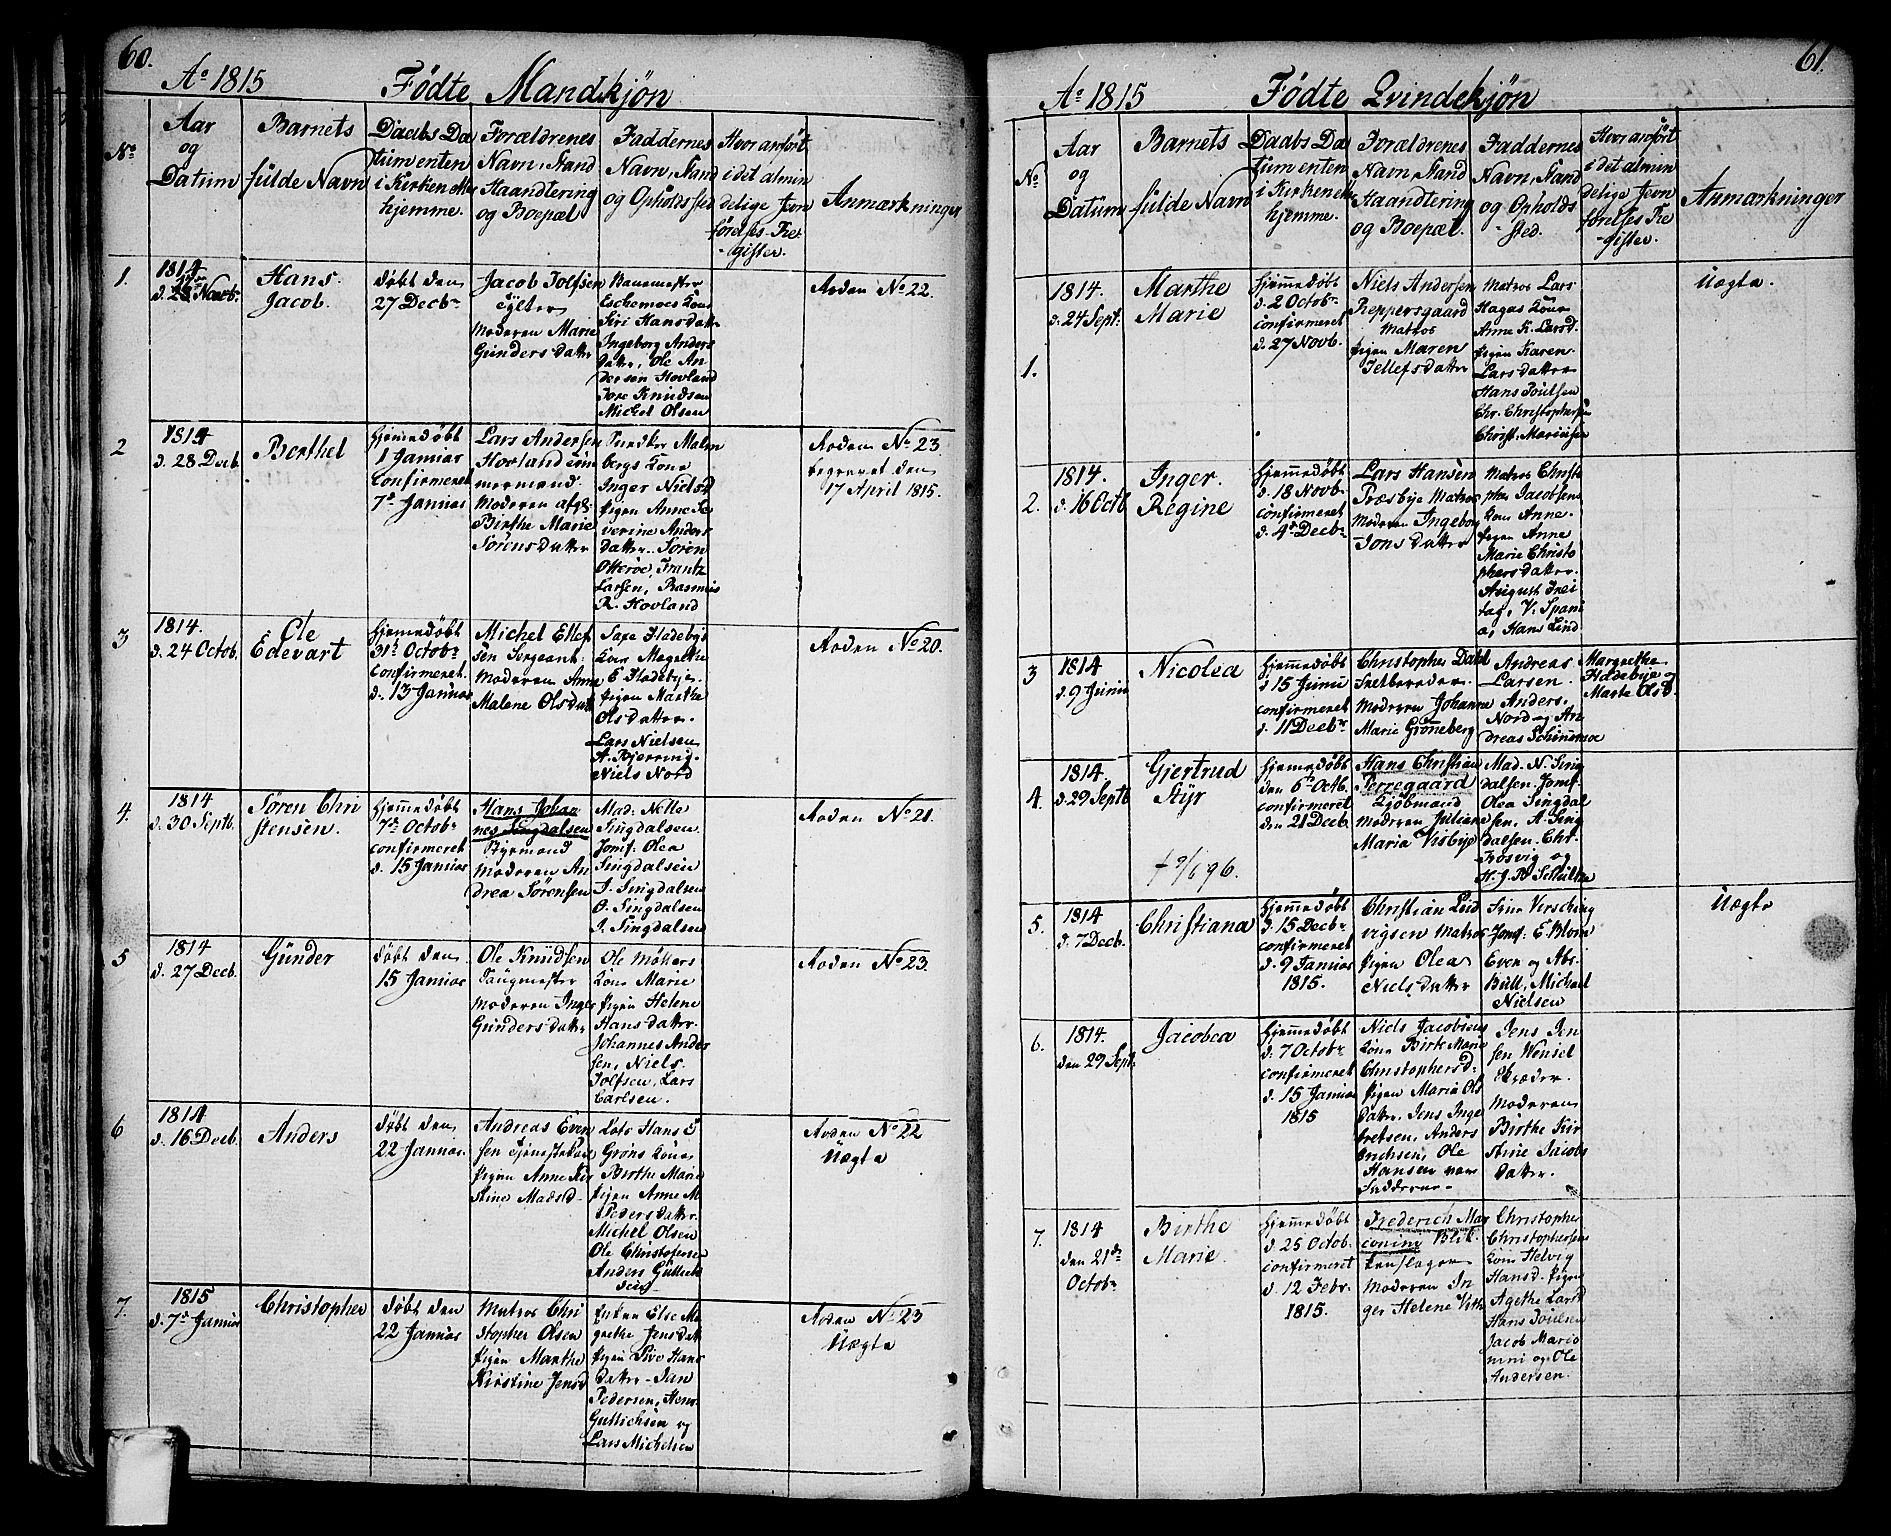 60.
Ao 1815 Fødte Mandkjøn
No
Aar og Datum
Barnets fulde Navn
Daabs Datum enten i Kirken el hjemme.
Forældrenes Navn, Stand Haandtering og Boepæl
Faddernes Navn, Stand og Opholdssted
Hvor anført i det almindelige Jevnførelses-Register.
Anmærkninger
1.
1814
d. 28 Novbr
Hans
Jacob.
døbt den
27 Decbr
Jacob Tolfsen
Moderen Marie
Gunders datter
Siri Hansdatter
Ingeborg Anders
datter, Ole An
dersen Hovland
Tore Knudsen
Michel Olsen
Aoden No 22.
2
1814
d. 28 Decb.
Berthel
Hjemmedøbt
1 Januar
confirmeret
7de Januar
Lars Andersen
Hovland Tøm
mermand.
Moderen
Birthe Marie
Sørensdatter
bergs Kone
Inger Nielsd
Pigen Anne Se
verine Anders
datter. Søren
Otterøe, Frantz
Larsen, Rasmus
R. Hovland
Aoden No 23.
begravet den
17 April 1815.
3
1814.
d. 24 Octob.
Ole
Edevart
Hjemmedøbt
31te Octobr
confirmeret
d. 13 Januar
Michel Ellef
sen Sergeant.
Moderen Anne
Malene Olsdatt
Kone Magrethe
E Fladebye.
Pigen Marthe
Olsdatter.
Lars Nielsen
A. Bjerring
Niels Nord
Aoden No 20.
4.
1814
d. 30 Septb.
Søren Chri
stensen.
Hjemmedøbt
7de Octobr
confirmeret
d. 15 Januar
Hans Johan
nes Singdalsen
Styrmand
Moderen An
drea Sørensen
Mad. Nille
Singdalsen
Jomf: Olea
Singdalsen
J. Singdalsen
O. Singdalsen
J. Singdalsen
Aoden No 21.
5
1814
d. 27 Decb.
Gunder
døbt den
15 Januar
Ole Knudsen
Taugmester
Moderen Inger
Gundersdatter
Ole Møllers
Kone Marie
Pigen Helene
Hansdatter.
Johannes Ander
sen, Niels
Tolfsen, Lars
Carlsen.
Aoden No 23.
6
1814
d. 16 Decb.
Anders
døbt den
22 Januar.
Andreas Even
sen Tjenestekarl
Pigen Anne Kir
stine Madsd
Lots Hans E
Grøns Kone
Birthe Marie
Pigen Anne M
Pedersdatter.
Michel Olsen
Ole Christofersen
Anders Gullich
sen
Aoden No 22
Uægte
7.
1815
d. 7de Januar
Christopher
døbt den
22 Januar
Matros Chri
stopher Olsen
Pigen Marthe
Kirstine Jensd
Enken Else Ma
grethe Jensdat
Pigen Sive Hans
datter Jan
Pedersen, Hans
Gullichsen og
Lars Michelsen
Aoden No 23
Uægte
61.
Ao 1815 Fødte Qvindekjøn
No
Aar og Datum
Barnets fulde Navn
Daabs Datum enten i Kirken el hjemme.
Forældrenes Navn, Stand Haandtering og Boepæl.
Faddernes Navn, Stand og Opholdssted.
Hvor anført i det almindelige Jevnførelses Register.
Anmærkninger
1.
1814.
d. 24 Sept:
Marthe
Marie
Hjemmedøbt
d. 2 Octobr
confirmeret
d. 27 Novb.
Niels Andersen
Reppersgaard
Matros
Pigen Maren
Tellefsdatter
Matros Lars
Hagas Kone
Anne K. Larsd.
Pigen Karen
Larsdatter
Hans Poulsen
Chr. Christophersen
Christ. Mariusen
Uægte.
2.
1814.
d. 16 Octb.
Inger
Regine
Hjemmedøbt
d. 18 Novb.
confirmeret
d. 4de Decbr
Lars Hansen
Præsbye Matros
Moderen Ingeborg
Jonsdatter
Matros Christo
pher Jacobsens
Kone Anne.
Pigen Anne
Marie Christo
phersdatter.
August Frei
tag, V. Spani
a, Hans Lind
3
1814
d. 9 Junii
Nicolea
Hjemmedøbt
d. 15 Junii
confirmeret
d. 11 Decbr
Christopher Dahl
Moderen Johanne
Marie Grøneberg
Andreas
Larsen.
Anders
Nord og An
dreas Schimmoe
Margrethe
Fladebye og
Marte Olsd.
4.
1814
d. 29 Septb
Gjertrud
Styr
† 9/6 96.
Hjemmedøbt
den 6te Octb.
confirmeret
den 21 Decb.
Hans Christian
Perregaard
Kjøbmand
Moderen Juliane
Maria Visbye
Mad. N. Sing
dalsen, Jomf.
Olea Singdal
sen, A. Sing
dalsen, Chr.
Frosvig og
H. J. B. Schultz
5.
1814
d. 7 Decb.
Christiana
Hjemmedøbt
d. 15 Decbr
confirmeret
d. 9 Januar
1815.
Christian Lud
vigsen Matros
Pigen Olea
Nielsdatter
Jomf: E. Blom
Even og Abr.
Bull, Michael
Nielsen
Uægte
6.
1814.
den 29 Sept:
Jacobea
Hjemmedøbt
d. 7 Octobr
confirmeret
d. 15 Januar
1815
Niels Jacobsens
Kone Birte Marie
Christophersd.
Pigen Maria Ols
datter, Jens Inge
bretsen, Anders
Erichsen, Ole
Hansen var
Fadderne.
Jens Jen
sen Wensel
Skræder
Moderen
Birthe Kir
stine Jacobs
datter.
7.
1814
den 21de
Octobr
Birthe
Marie.
Hjemmedøbt
d. 25 Octob.
confirmeret
d. 12 Febr.
1815.
Frederich Mar
conini Blik
kenslager
Moderen In
ger Helene Vith
Christopher
Christophersen
Kone Helvig
Hansd. Pigen
Agethe Larsd
Hans Poulsen
Jacob Marco
nini og Ole
Andersen.